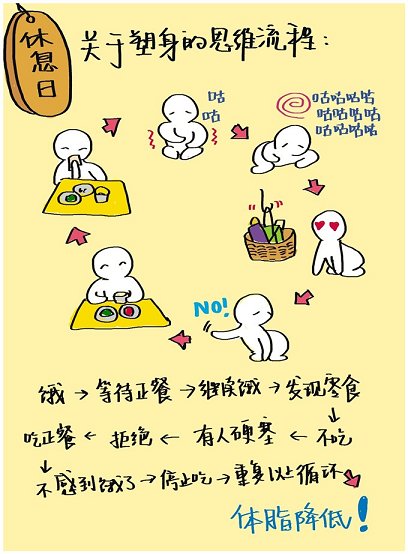 休息日
关于塑身的思维流程：
咕
咕
咕咕咕咕
咕咕咕咕
咕咕咕咕
NO!
饿→等待正餐→继续饿→发现零食
↓
吃正餐←拒绝←有人硬塞←不吃
↓
不感到饿了→停止吃→重复以上循环
体脂降低！